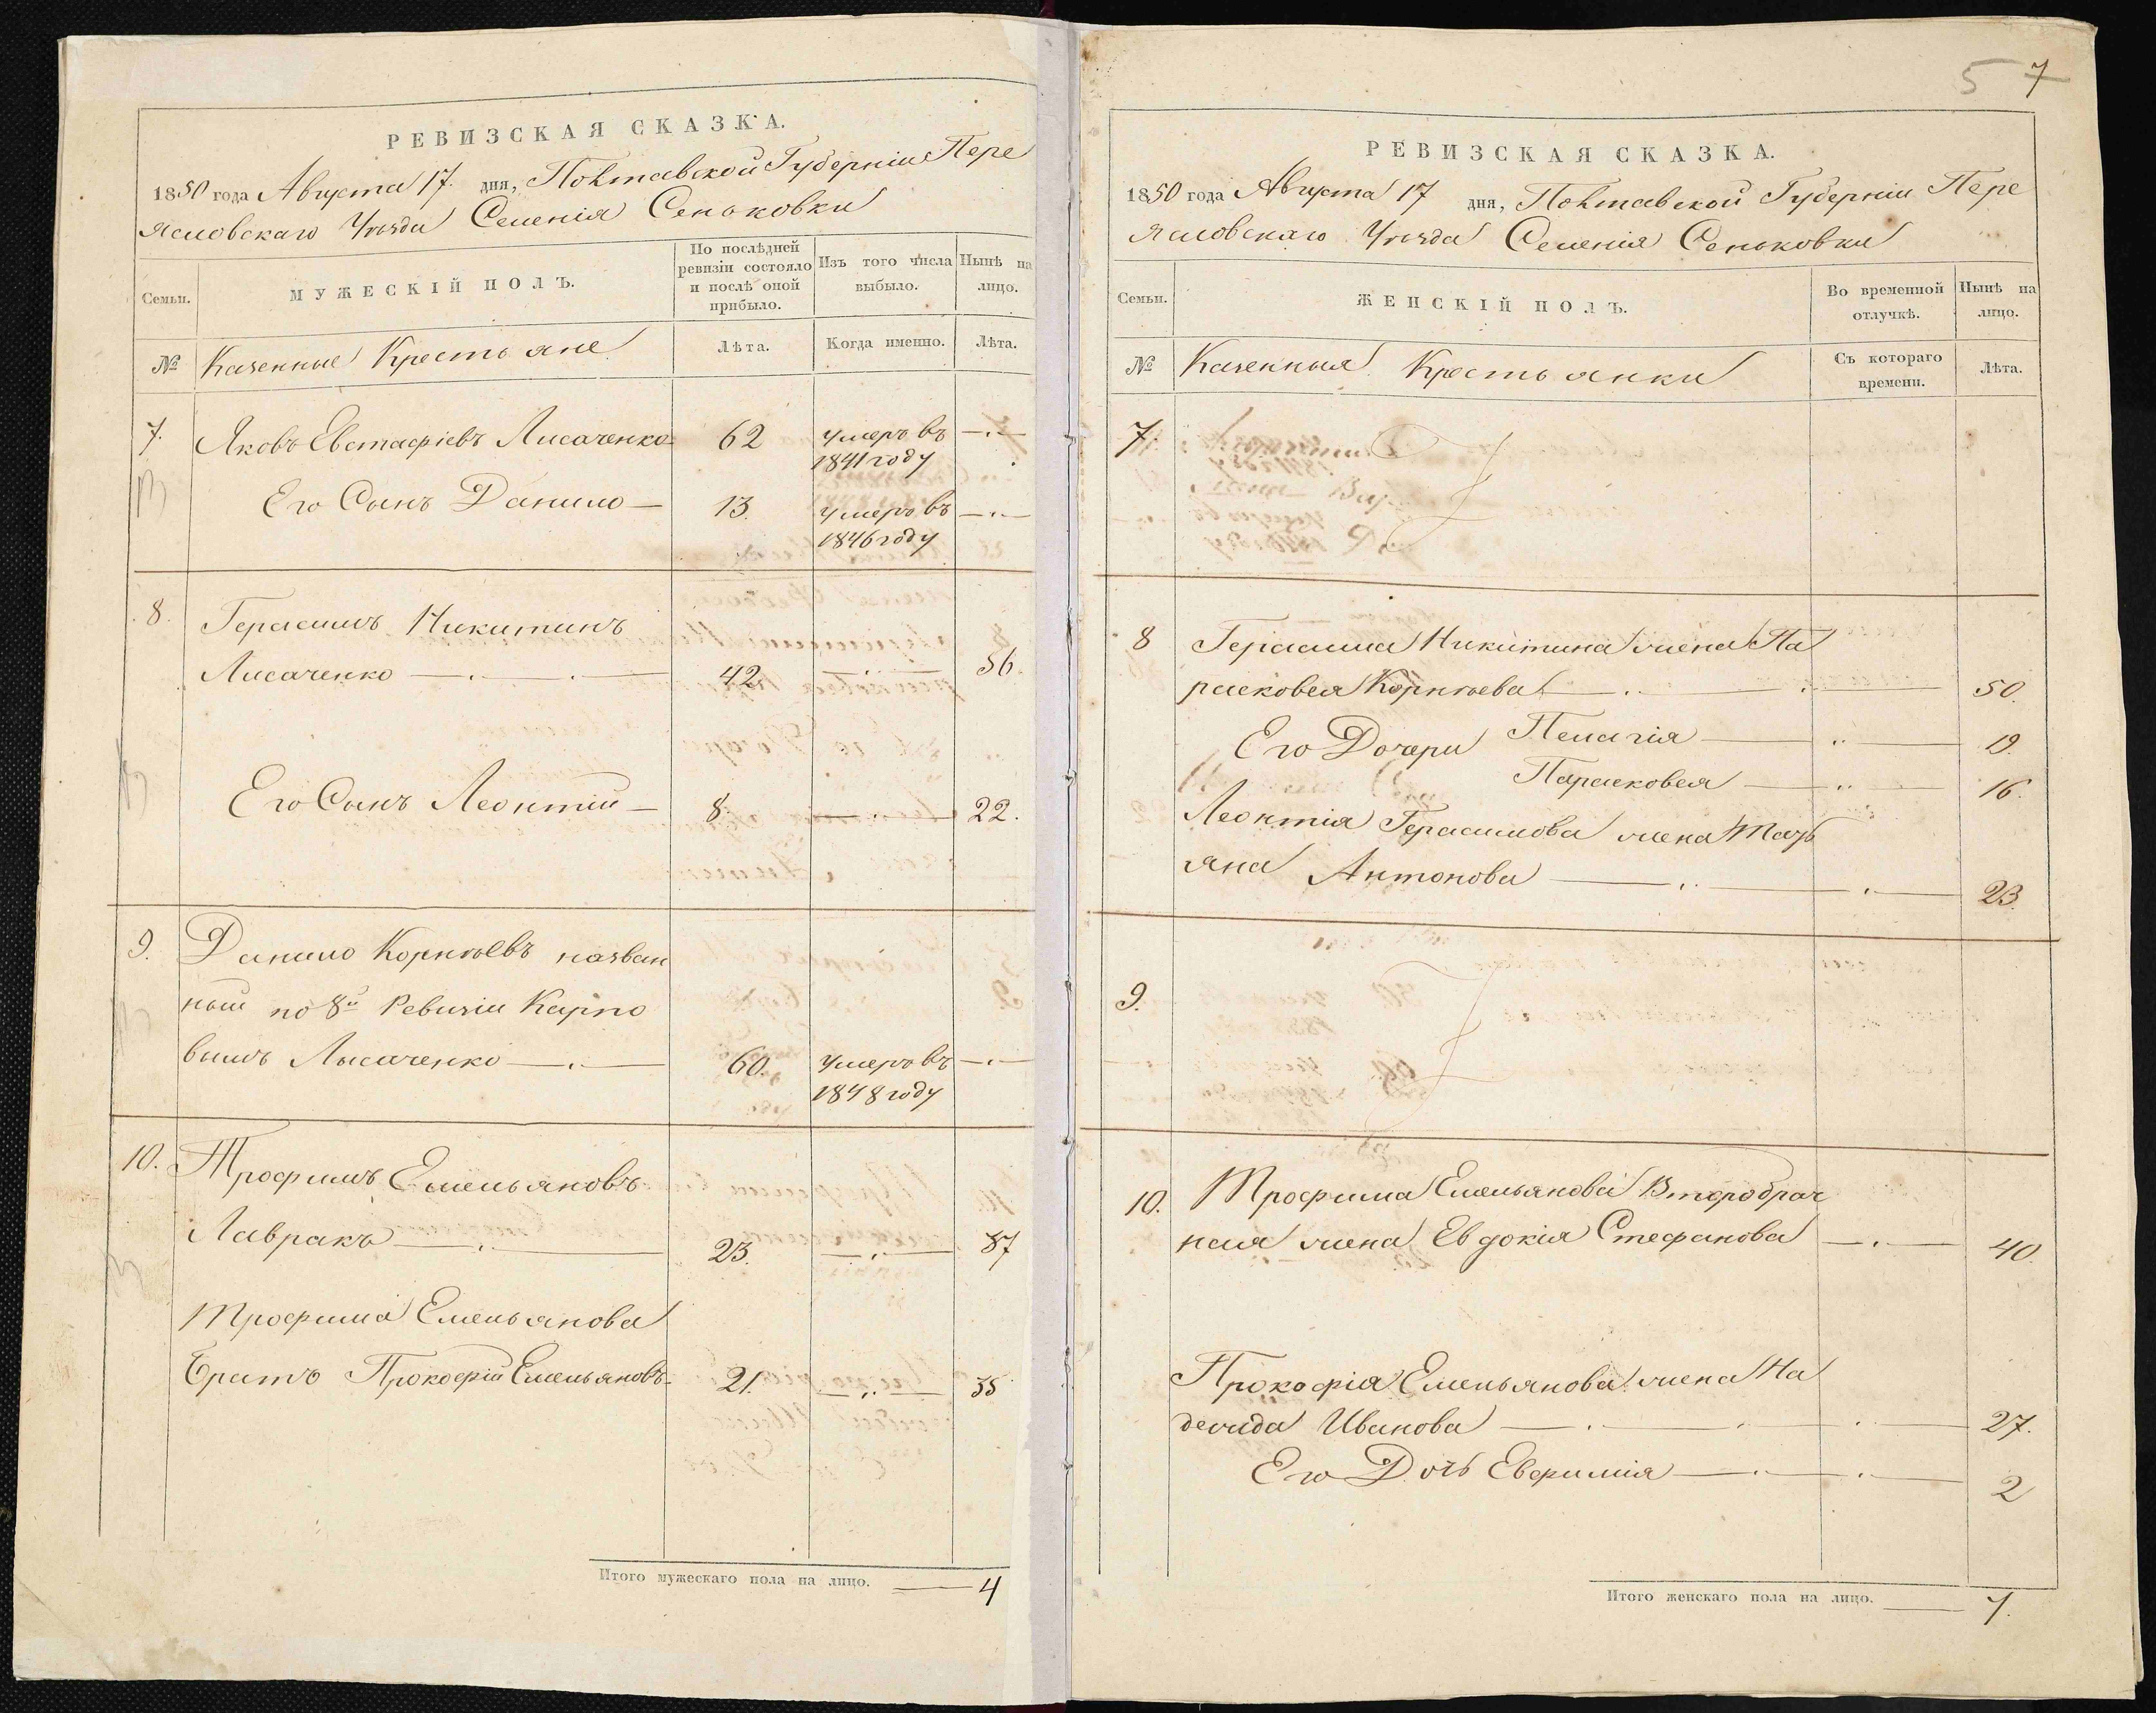 РЕВИЗСКАЯ СКАЗКА.
1850 года Августа 17. дня, Полтавской Губерніи Пере
ясловскаго Уѣзда Селенія Сеньковки
Семьи.
МУЖЕСКІЙ ПОЛЪ.
По послѣдней
ревизіи состояло
и послѣ оной
прибыло.
Изъ того числа
выбыло.
Нынѣ на
лицо.
№
Казенные Крестьяне
Лѣта.
Когда именно.
Лѣта.
7. Яковъ Евстафіевъ Лисаченко 62 умеръ въ —.—
1841 году
Его Сынъ Данило — 13. умеръ въ —.—
1846 году
8. Герасимъ Никитинъ
Лисаченко —.—.— 42. —.— 56.
Его Сынъ Леонтій — 8. —.— 22.
9. Данило Корнѣевъ назван
ный по 8й Ревизіи Карпо
вымъ Лысаченко —.— 60. умеръ въ —.—
1848 году
10. Трофимъ Емельяновъ
Лавракъ —.— 23. —.— 37
Трофима Емельянова
Братъ Прокофій Емельяновъ 21. —.— 35
Итого мужескаго пола на лицо. — 4
5 7
РЕВИЗСКАЯ СКАЗКА.
1850 года Августа 17 дня, Полтавской Губерніи Пере
ясловскаго Уѣзда Селенія Сеньковки
Семьи.
ЖЕНСКІЙ ПОЛЪ.
Во временной
отлучкѣ.
Нынѣ на
лицо.
№
Казенныя Крестьянки
Съ котораго
времени.
Лѣта.
7.
8 Герасима Никитина жена Па
расковея Корнѣева —.—.— 50.
Его Дочери Пелагія — .. — 19.
Парасковея — .. — 16.
Леонтія Герасимова жена Тать
яна Антонова —.—.— 23.
9.
10. Трофима Емельянова Второбрач
ная жена Евдокія Стефанова —.— 40.
Прокофія Емельянова жена На
дежда Иванова —.—.— 27.
Его Дочь Евфимія —.—.— 2
Итого женскаго пола на лицо. — 7.